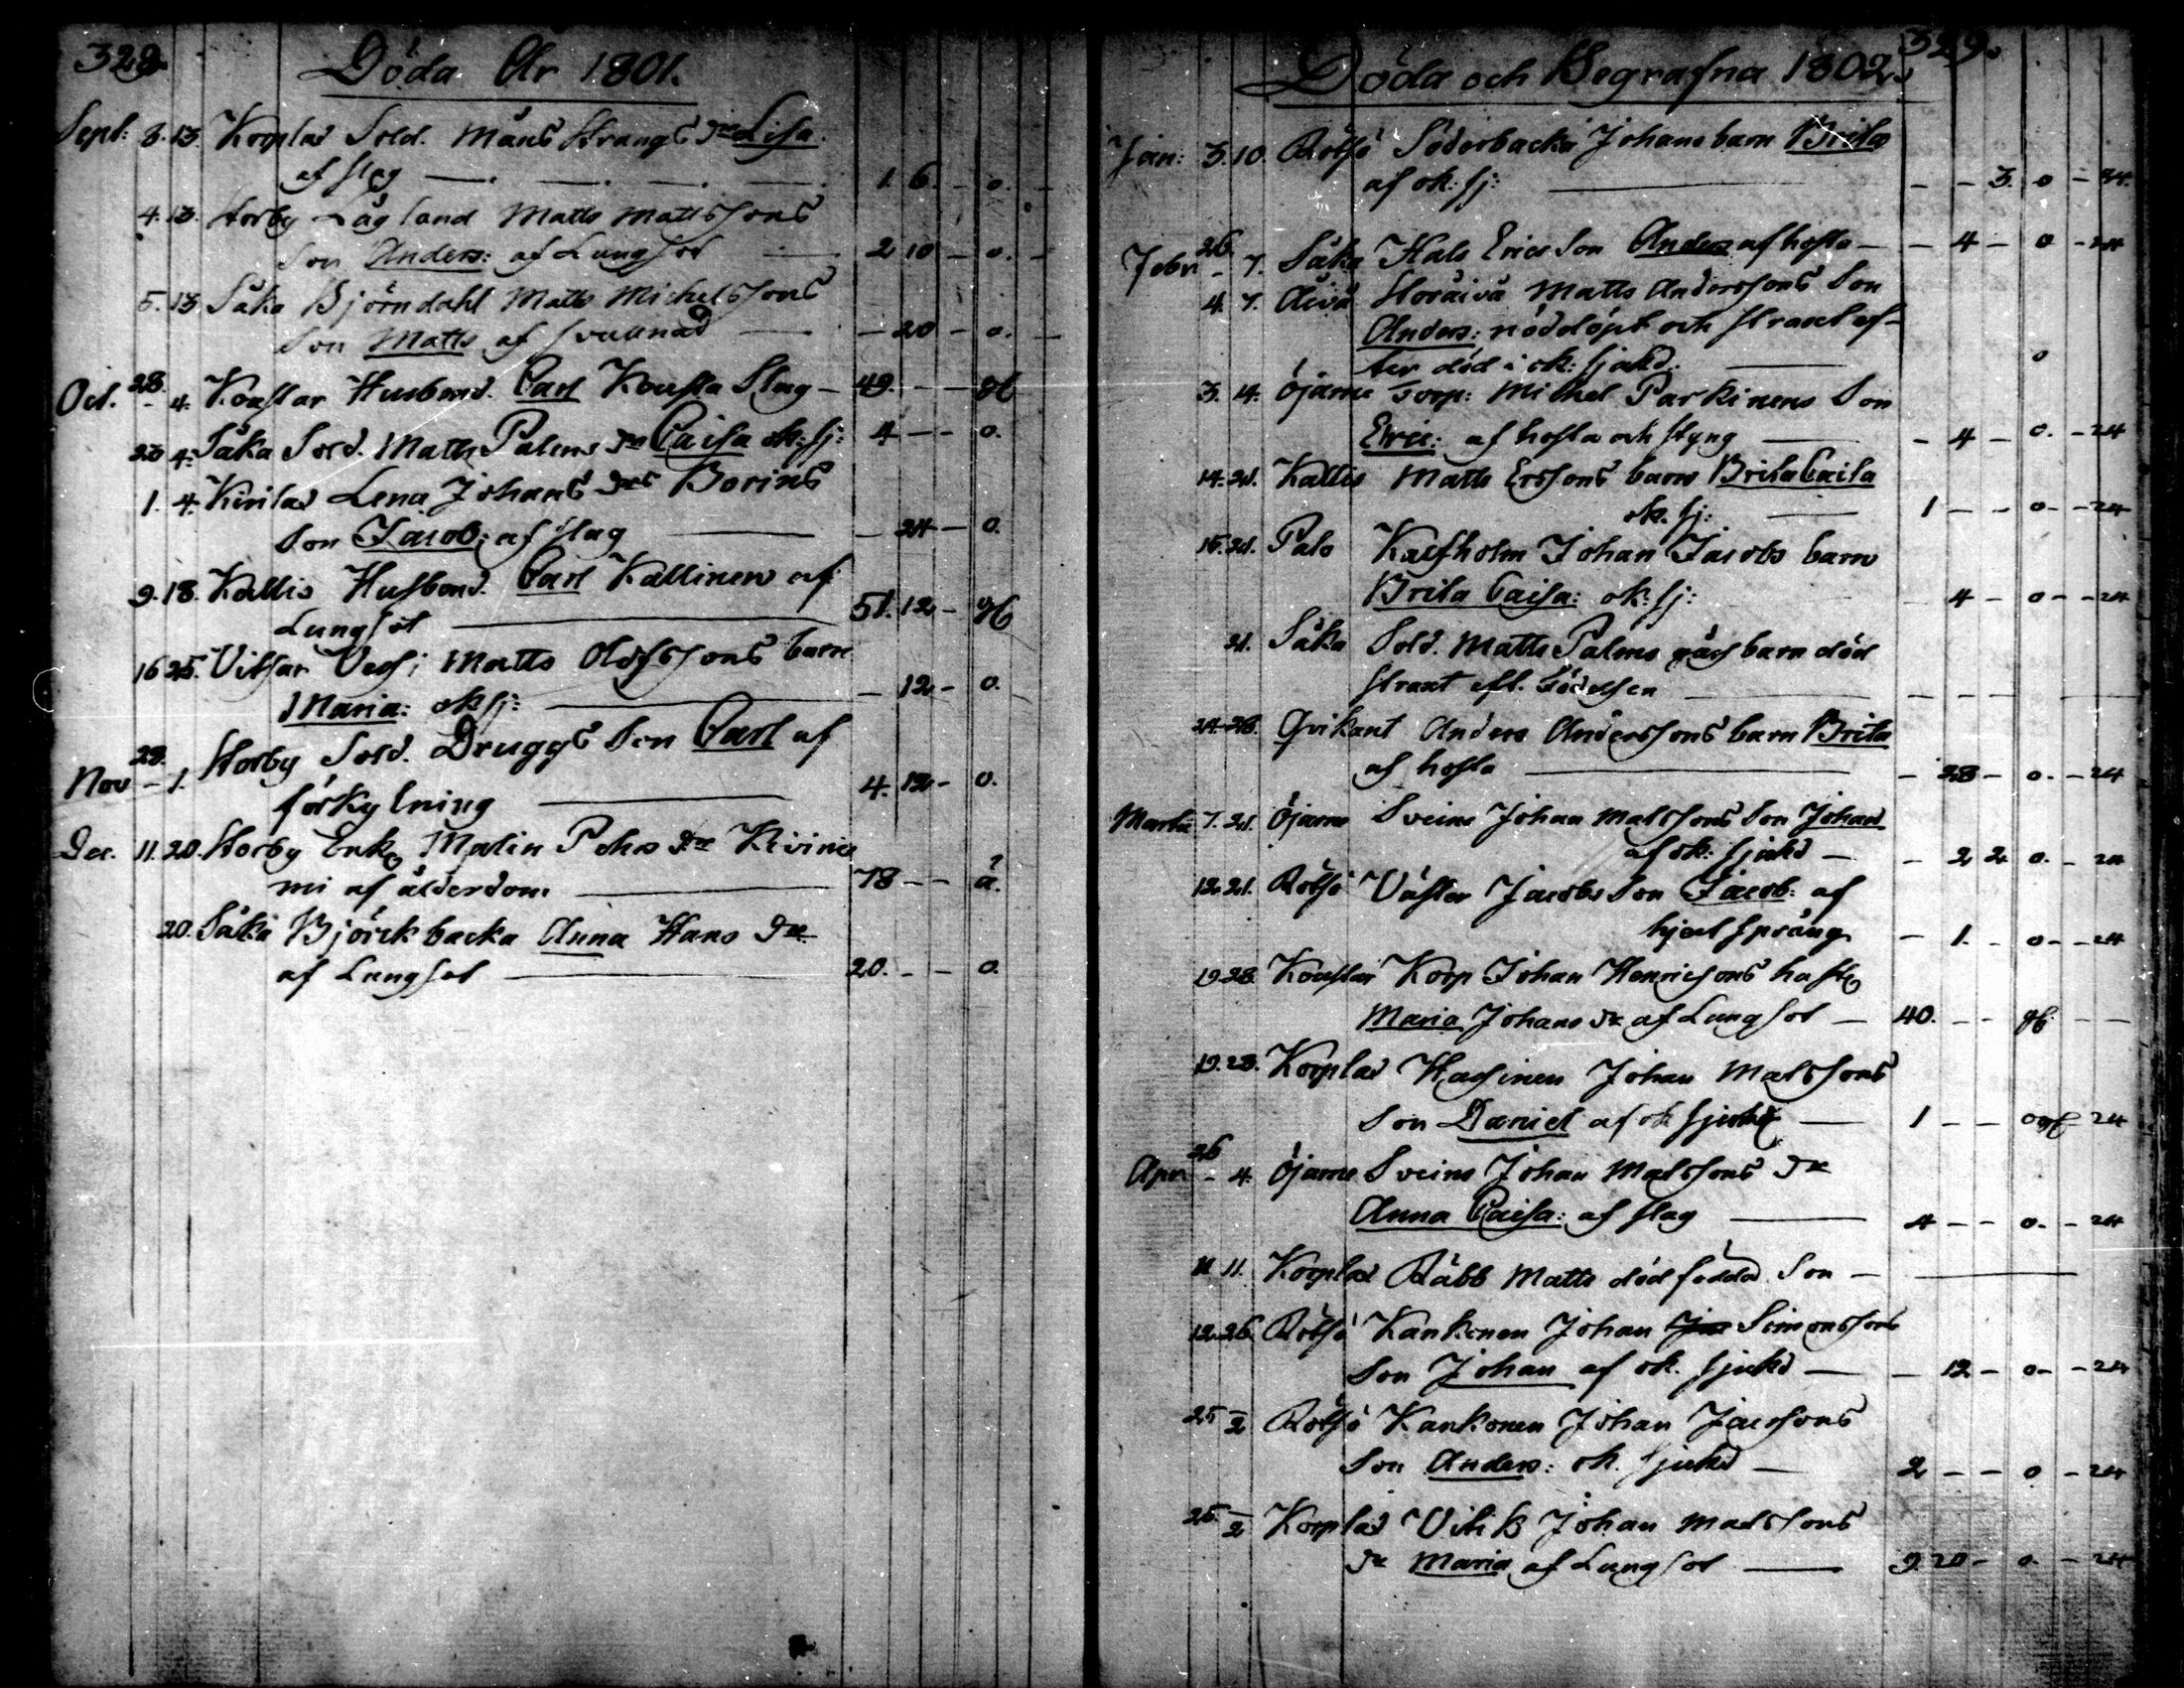 328.
Döda År 1801.
Sept: 8. 13. Korplax Sold. Måns Strangs dr Lisa
af slag — 1. 6. - o. -
4. 13. Storby Lågland Matts Mattssons
Son Anders: af Lungsot — 2 10 - o. -
5. 13 Säka Björndahl Matts Michelssons
Son Matts af svullnad — - 20 - o. -
Oct. 28. - 4. Kouflax Husbond. Carl Koufla Slag - 49. - - gl
23 4. Säka Sold. Matts Palms dr Caisa ok: sj: 4 - - o.
1. 4. Kivilax Lena Johans drs Borins
Son Jacob: af slag — - 24 - o.
9. 18. Kallis Husbond. Carl Kallinen af
Lungsot — 51. 12 - gl
16 25. Vitsar Matts Olofssons barn
Maria: ok sj: — - 12 - o.
Nov 28. - 1. Storby Sold. Druggs Son Carl af
förkylning — 4. 12 - o.
Dec. 11. 20. Storby Enk. Malin Pehrs dr Kivinie
mi af ålderdom — 78 - - a.
20. Säka Björckbacka Anna Hans dr
af Lungsot — 20. - - o.
329.
Döda och Begrafna 1802.
Jan: 3. 10. Rölsö Söderbacka Johans barn Brita
af ok: sj: — - - 3. o - 24.
Febr 26. - 7. Säka Hals Erics Son Anders af hosta - - 4 - o - 24
4. 7. Äivä Storäivä Matts Anderssons Son
Anders: nöddöpt och straxt ef-
ter död i ok: sjukd. — o
3. 14. Öjarne Torp: Michel Parkinens Son
Eric: af hosta och styng — - 4 - o. - 24
14. 21. Kallis Matts Erssons barn Brita Caisa
ok. sj: — 1 - - o - - 24
15. 21. Palo Kalfholm Johan Jacobs barn
Brita Caisa: ok: sj: - 4 - o - - 24
21. Säka Sold. Matts Palms barn död
straxt eft. födelsen — - - - -
24. 28. Qvikant Anders Anderssons barn Brita
af hosta — - 28 - o. - 24
Martii 7. 21. Öjarne Sveins Johan Matssons Son Johan
af ok: sjukd — - 2 2 o. - 24
12. 21. Rölsö Väster Jacobs Son Jacob: af
hjertsprång - 1. - o - - 24
19. 28. Kouflax Korp Johan Henricsons hustr
Maria Johans dr af Lungsot — 40. - - gl. - -
19. 28. Korplax Hasinen Johan Matssons
Son Daniel af ok sjukd — 1 - - ogl 24
Apr. 26 - 4. Öjarne Sveins Johan Matssons dr
Anna Caisa: af slag — 4 - - o. - 24
11 11. Korplax Räbb Matts dödfödda Son -
12. 26. Rölsö Kankonen Johan Simonssons
Son Johan af ok. sjukd — - 12 - o - - 24
25 2 Rölsö Kankonen Johan Jacobsons
Son Anders: ok. sjukd — 2 - - o - 24
25. 2 Korplax Vitik Johan Matssons
dr Maria af Lungsot — 9 20 - o. - 24